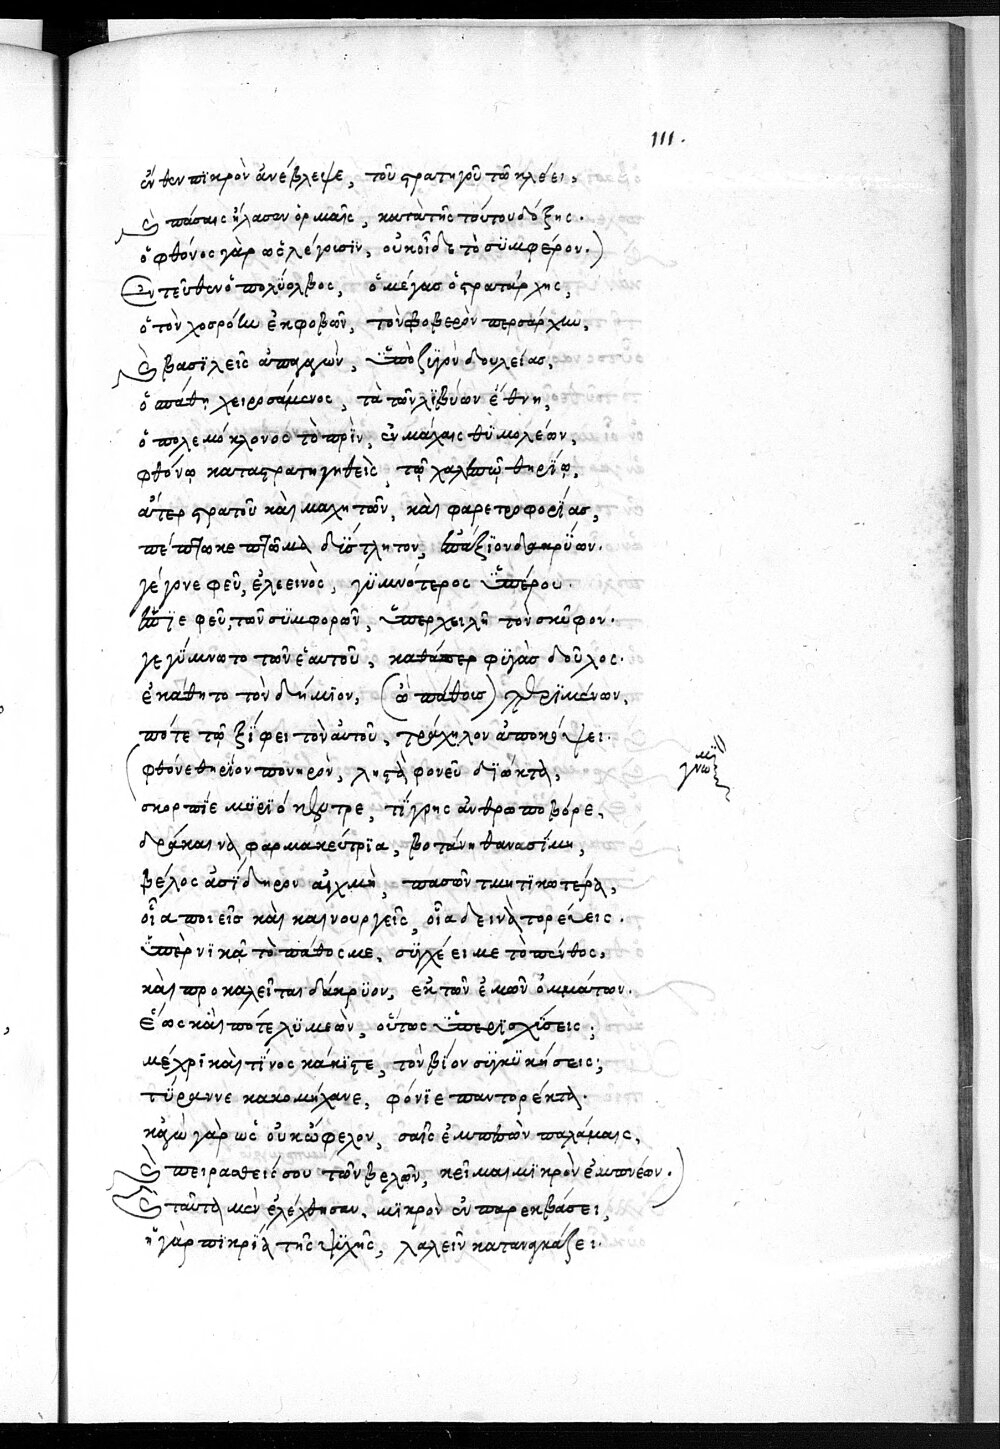 111.
ἔνθεν πϊκρὸν ἀνέβλεψε, τοῦ στρατηγοῦ τῶ κλέει,
καὶ πάσαις ἤλασεν ὁρμαῖς, κατὰ τῆς τούτου δόξης.
ὁ φθόνος γὰρ ὡς λέγουσϊν, οὐκ οἶδε τὸ σϋμφέρον.)
Ἐντεῦθεν ὁ πολύολβος, ὁ μέγας ὁ στρατάρχης,
ὁ τὸν χοσρόην ἐκφοβῶν, τὸν φοβερὸν περσάρχην,
καὶ βασϊλεῖς ἀπαγαγὼν, ὑπὸ ζϋγὸν δουλείας,
ὁ πάθη χειρωσάμενος, τὰ τῶν λϊβύων ἔθνη,
ὁ πολεμόκλονος τὸ πρὶν, ἐν μάχαις θϋμολέων,
φθόνῳ καταστρατηγηθεὶς, τῷ χαλεπῷ θηρίῳ,
ἄτερ στρατοῦ καὶ μαχητῶν, καὶ φαρετροφορίας,
πέπτωκε πτῶμα δύστλητον, ἐπάξϊον δακρύων.
γέγονε φεῦ, ἐλεεινὸς, γϋμνότερος ὑπέρου.
ἔπϊε φεῦ, τῶν σϋμφορῶν, ὑπερχειλῆ τὸν σκύφον.
γεγύμνωτο τῶν ἑαυτοῦ, καθάπερ φϋγὰς δοῦλος.
ἐκάθητο τὸν δήμϊον, (ὢ πάθους) περϊμένων,
πότε τῷ ξίφει τὸν αὐτοῦ, τράχηλον ἀποκόψει.
(φθόνε θηρίον πονηρὸν, λῃστὰ φονεῦ δϊῶκτα,
σκορπίε μϋρϊόκεντρε, τίγρης ἀνθρωποβόρε,
δράκαινα φαρμακεύτρϊα, βοτάνη θανασίμη,
βέλος ἀσίδηρον αἰχμὴ, πασῶν τμητϊκωτέρα,
οἷα ποιεῖς καὶ καινουργεῖς, οἷα δεινὰ τορεύεις.
ὑπερνϊκᾶ τὸ πάθος με, σϋγχέει με τὸ πένθος,
καὶ προκαλεῖται δάκρϋον, ἐκ τῶν ἐμῶν ὀμμάτων.
ἕως καὶ πότε λϋμεὼν, οὕτως ὑπερϊσχύσεις;
μέχρϊ καὶ τίνος κάκϊστε, τὸν βίον σϋγκϋκήσεις;
τύραννε κακομήχανε, φόνϊε παντορέκτα.
κἀγὼ γὰρ ὡς οὐκ ὤφελον, σαῖς ἐμπεσὼν παλάμαις,
καὶ πειρασθεὶς σου τῶν βελῶν, κεῖμαι μϊκρὸν ἐμπνέων.)
καὶ ταῦτα μὲν ἐλέχθησαν, μϊκρὸν ἐν παρεκβάσει,
ἡ γὰρ πϊκρία τῆς ψϋχῆς, λαλεῖν καταναγκάζει.